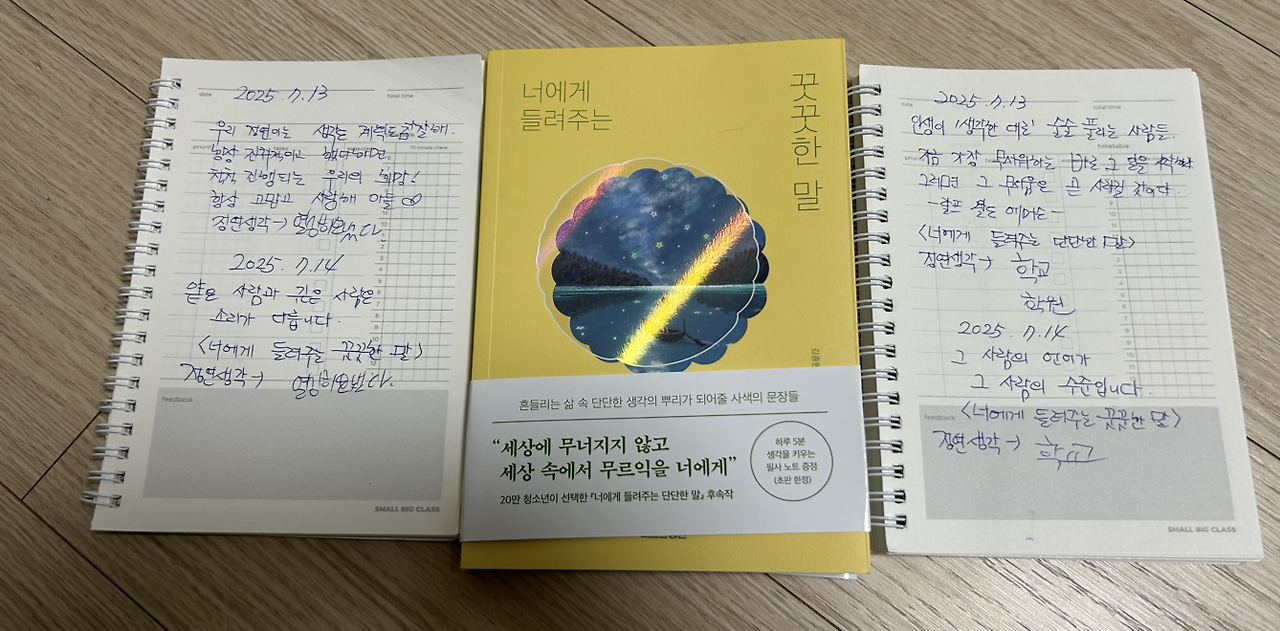 date 2025.7.13 total time
우리 정연이는 생각은 계획도 잘해.
priority tasks 10 minute check
항상 긴
항상 고맙고 사랑해 아들
정연생각→
2025.7.14
얕은 사람과 깊은 사람은
소리가 다릅니다.
<너에게 들려주는 꼿꼿한 말>
정연생각→
feedback
SMALL BIG CLASS
너에게
들려주는
꼿꼿한 말
흔들리는 삶 속 단단한 생각의 뿌리가 되어줄 사색의 문장들
“세상에 무너지지 않고
세상 속에서 무르익을 너에게”
20만 청소년이 선택한 『너에게 들려주는 단단한 말』 후속작
하루 5분
생각을 키우는
필사 노트 증정
(초판 한정)
date 2025.7.13 total time
인생이 '생각한 대로' 술술 풀리는 사람들.
timetable
지금 가장 무서워하는 바로 그 일을 시작하라
그러면 그 무서움은 곧 사라질 것이다.
-랄프 왈도 에머슨-
<너에게 들려주는 단단한 말>
정연생각→ 학교
학원
2025.7.14
그 사람의 언어가
그 사람의 수준입니다.
<너에게 들려주는 꼿꼿한 말>
feedback
정연생각→ 학교
SMALL BIG CLASS